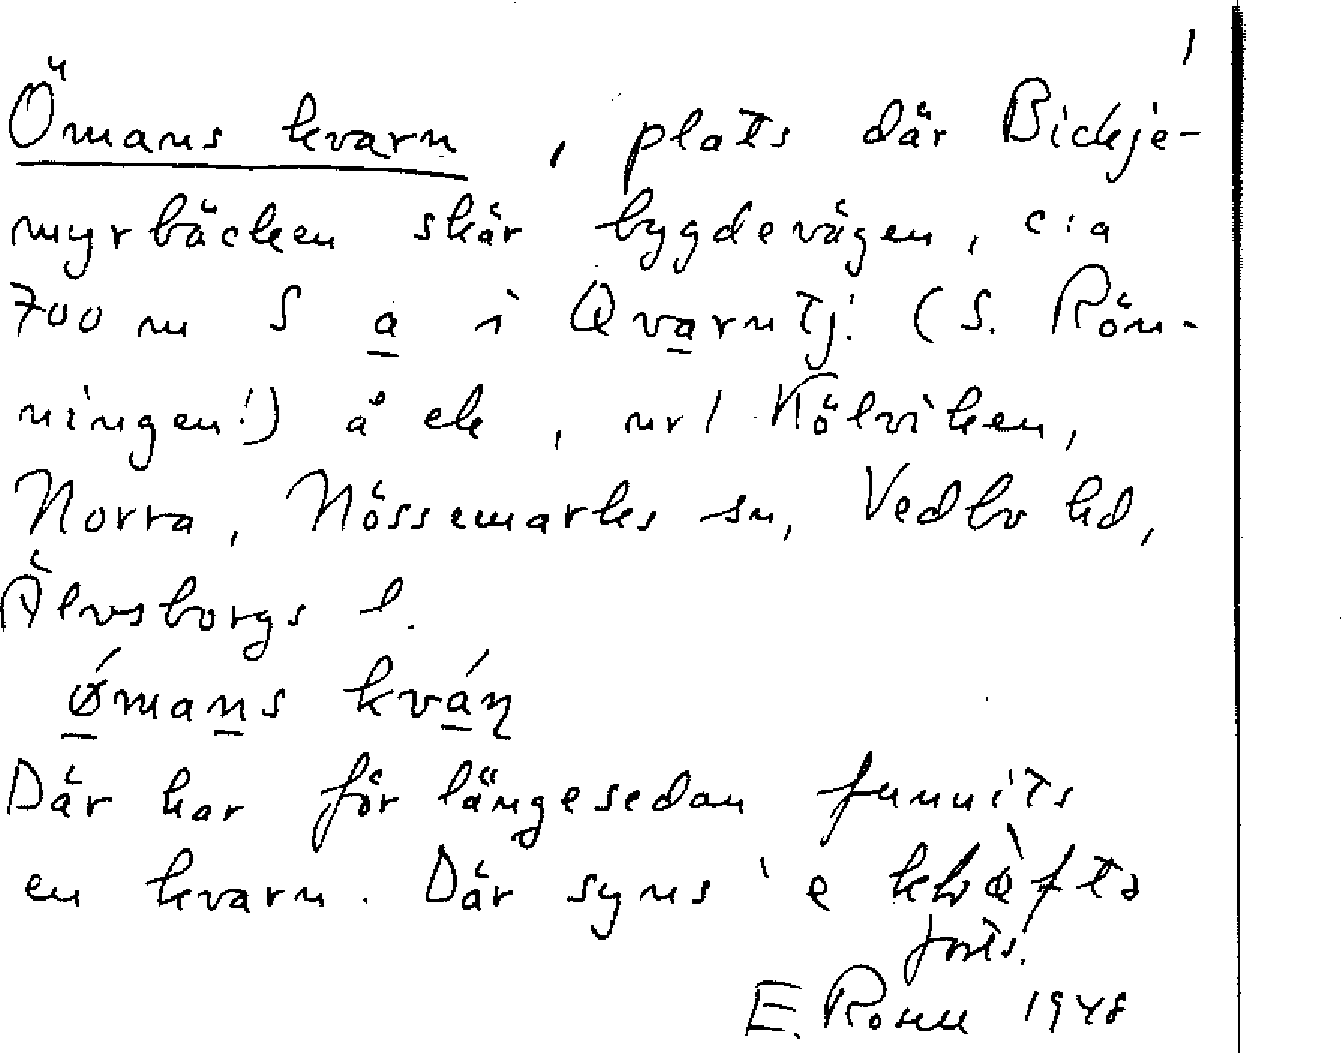 1
Ömans kvarn, plats där Bickje-
myrbäcken skär bygdevägen, c:a
700 m S a i Qvarntj. (S. Rön-
ningen!) å ek, nr 1 Kölviken,
Norra, Nössemarks sn, Vedbo hd,
Älvsborgs l.
Där har för längesedan funnits
en kvarn. Där syns 'e
forts.
E. Rosell 1948